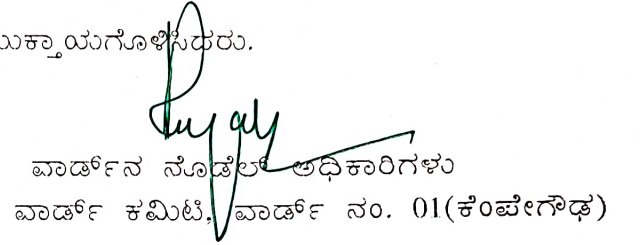 ಮುಕ್ತಾಯಗೊಳಿಸಿದರು.
ವಾರ್ಡ್‌ನ ನೊಡೆಲ್ ಅಧಿಕಾರಿಗಳು
ವಾರ್ಡ್ ಕಮಿಟಿ, ವಾರ್ಡ್ ನಂ. 01(ಕೆಂಪೇಗೌಡ)